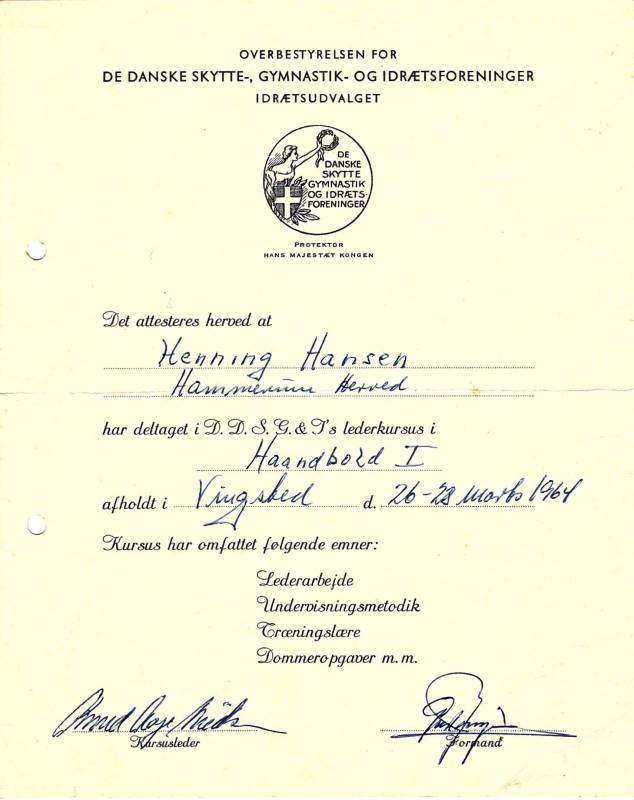 OVERBESTYRELSEN FOR
DE DANSKE SKYTTE-, GYMNASTIK- OG IDRÆTSFORENINGER
IDRÆTSUDVALGET
DE
DANSKE
SKYTTE
GYMNASTIK
OG IDRÆTS-
FORENINGER
PROTEKTOR
HANS MAJESTÆT KONGEN
Det attesteres herved at
Henning Hansen
Hammerum Herred
har deltaget i D. D. S. G. & I's lederkursus i
Haandbold I
afholdt i Vingsted d. 26-28 Marts 1964
Kursus har omfattet følgende emner:
Lederarbejde
Undervisningsmetodik
Træningslære
Dommeropgaver m. m.
Kursusleder Formand